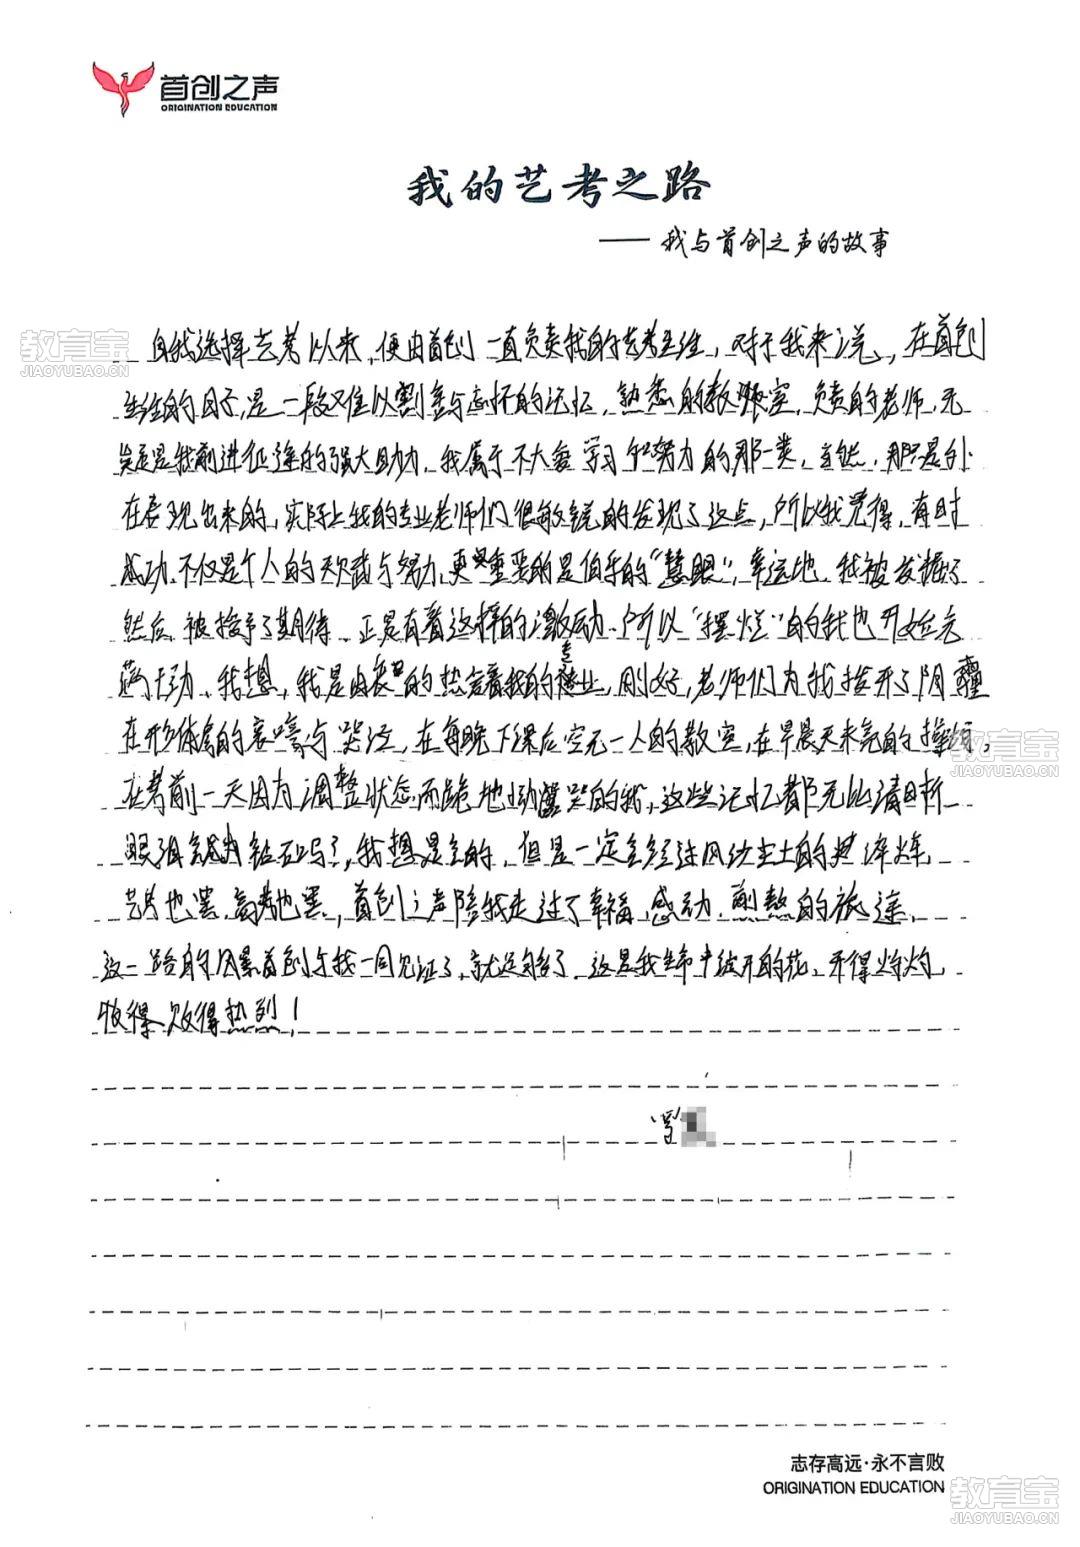 首创之声
ORIGINATION EDUCATION
我的艺考之路
——我与首创之声的故事
自我选择艺考以来,便由首创一直负责我的艺考生涯,对于我来说,在首创
生涯的日子,是一段难以割舍与忘怀的记忆,熟悉的教室,负责的老师,无
疑是我前进征途的强大助力,我属于不大爱学习和努力的那一类,当然,那只是外
在表现出来的,实际上我的专业老师们很敏锐的发现了这点,所以我觉得,有时
成功,不仅是个人的天赋与努力,更重要的是伯乐的“慧眼”,幸运地,我被发掘了
然后,被授予了期待,正是有着这样的激励,所以“摆烂”的我也开始充
满干劲,我想,我是由衷的热爱着我的专业,刚好,老师们为我拨开了阴霾
在形体房的哀嚎与哭泣,在每晚下课后空无一人的教室,在早晨天未亮的操场,
在考前一天因为调整状态而跪地嚎哭的我,这些记忆都无比清晰
眼泪会成为钻石吗?我想是会的,但是一定会经过风沙尘土的
艺考也罢,高考也罢,首创之声陪我走过了幸福、感动、煎熬的旅途,
这一路的风景首创与我一同见证了,就足够了,这是我生命中绽开的花,开得灼灼
败得,败得热烈!
志存高远·永不言败
ORIGINATION EDUCATION
教育宝
JIAOYUBAO.CN
教育宝
JIAOYUBAO.CN
教育宝
JIAOYUBAO.CN